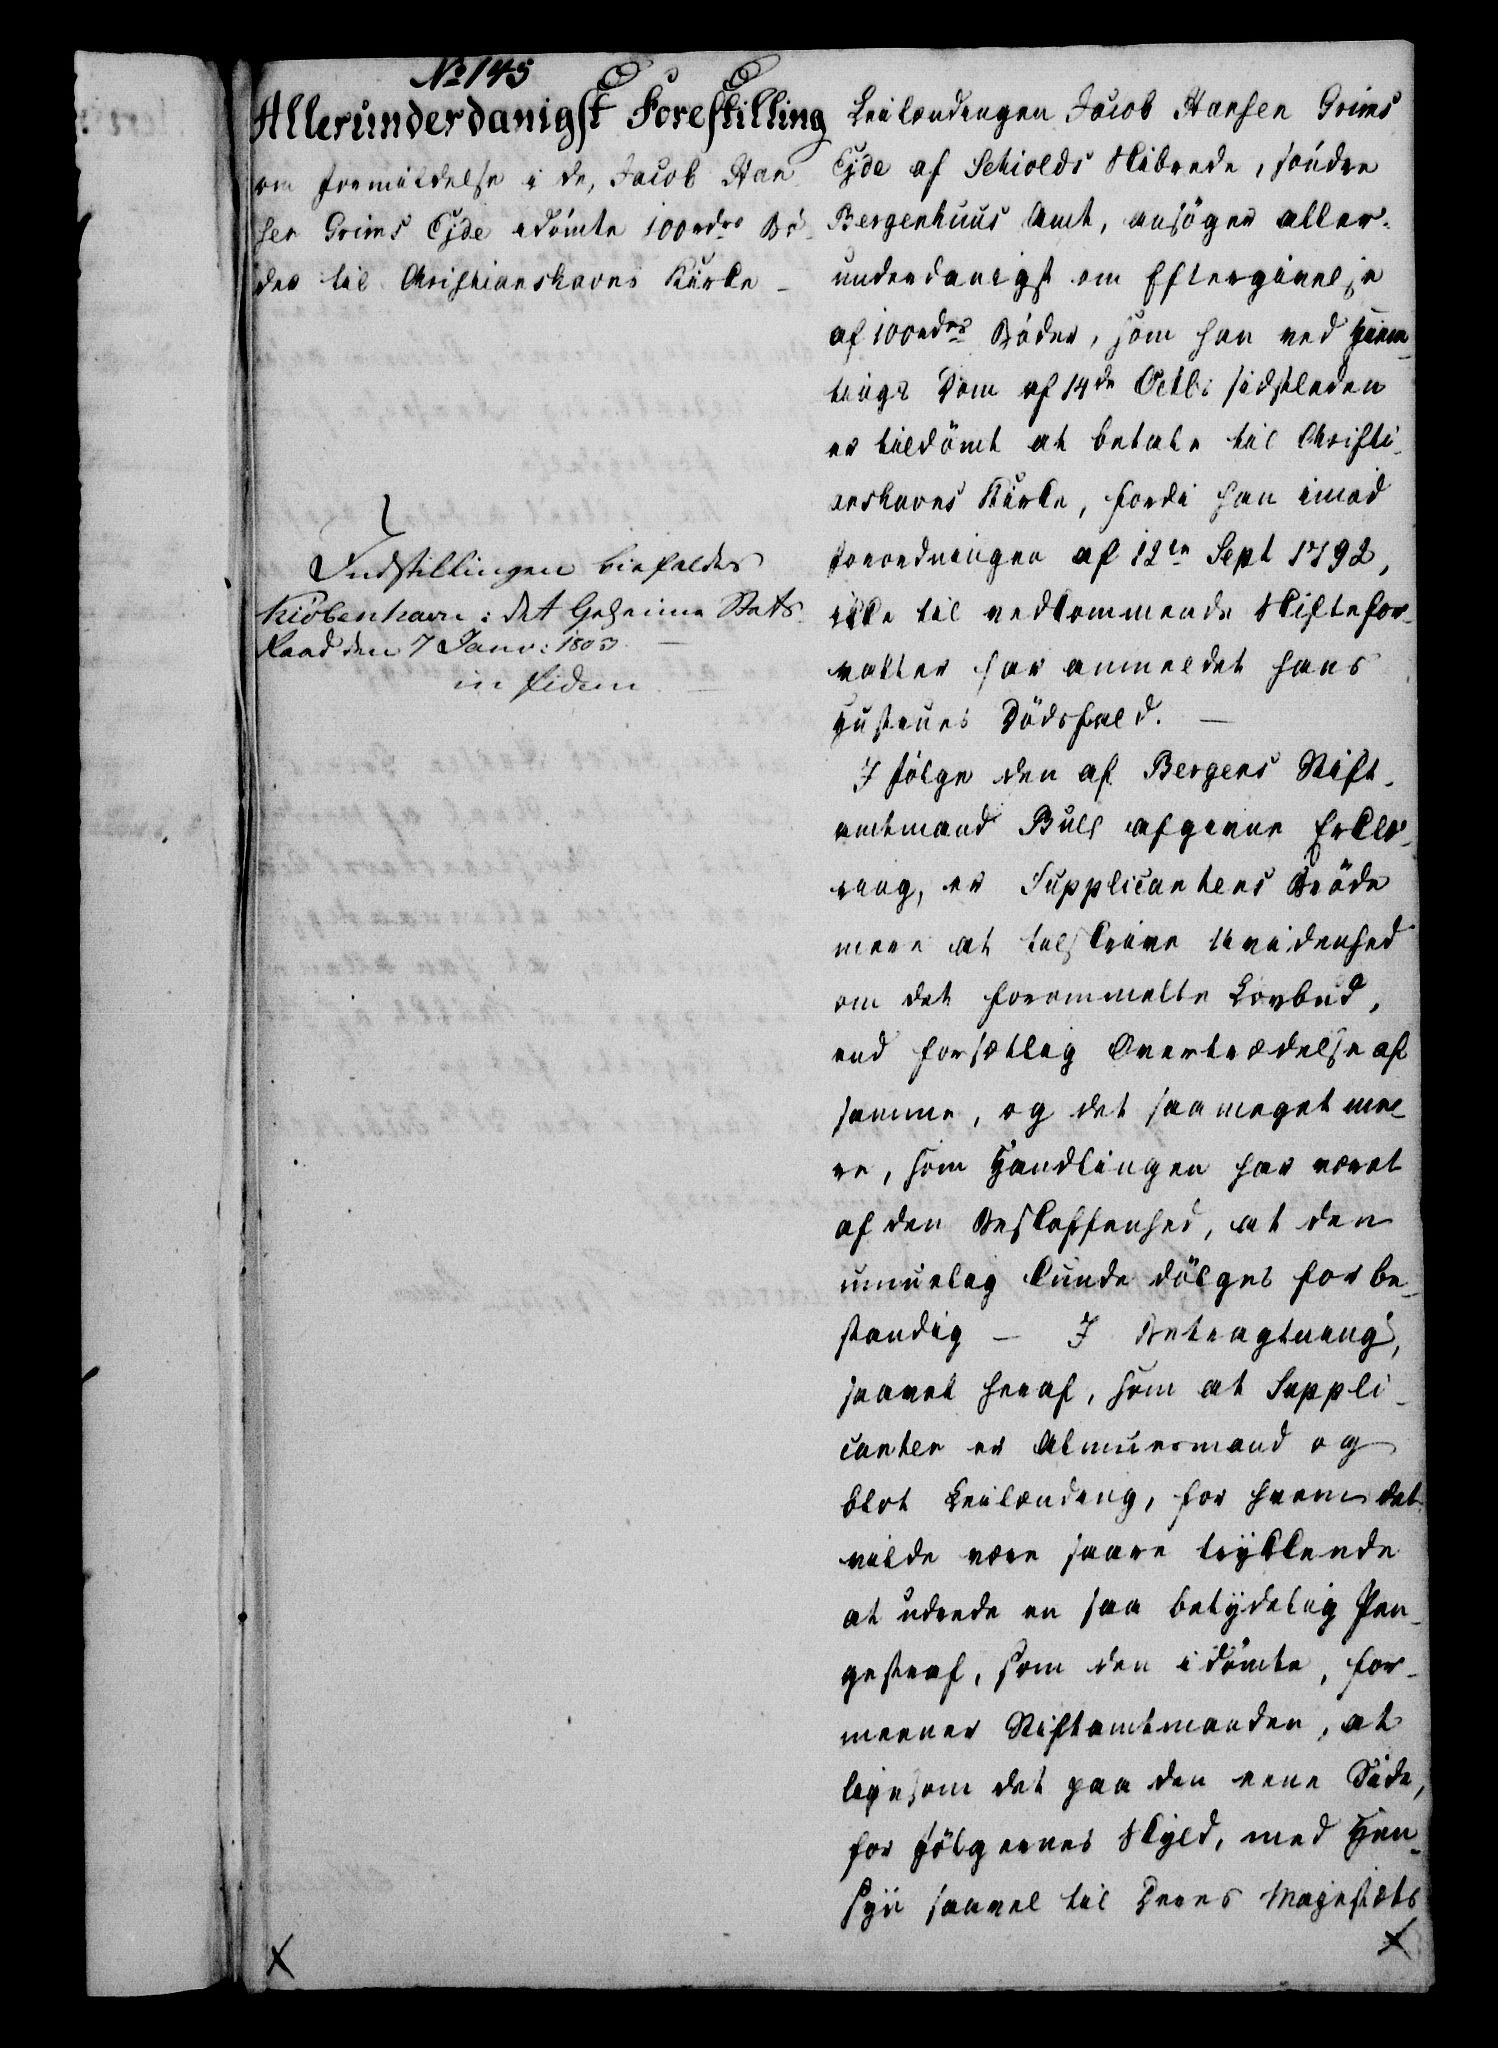 No 145
Allerunderdanigst Forestilling
om formildelse i de, Jacob Han
sen Grims Ejde idømte 100rdrs Bø-
der til Christianshavns Kirke -
Indstillingen bifaldes
Kiøbenhavn: det Geheime Stats
Raad den 7 Janv: 1803. -
in fidem. -
Leilændingen Jacob Hansen Grims
Ejde af Schiolds Skibrede, søndre
Bergenhuus Amt, ansøger aller-
underdanigst om Eftergivelse
af 100rdrs Bøder, som han ved Hiem-
tings Dom af 14de Octb: sidstleden
er tildømt at betale til Christi-
anshavns Kirke, fordi han imod
Forordningen af 12te Sept 1792,
ikke til vedkommende Skiftefor-
valter har anmeldet hans
Hustrues Dødsfald. -
I følge den af Bergens Stift-
amtmand Bull afgivne Erklæ-
ring, er Supplicantens Brøde
mere at tilskrive Uvidenhed
om det forommelte Lovbud,
end forsætlig Overtrædelse af
samme, og det saameget me-
re, som Handlingen har været
af den Beskaffenhed, at den
umuelig kunde dølges for be-
standig - I Betragtning,
saavel heraf, som at Suppli-
canten er Almuesmand og
blot Leilænding, for hvem det
vilde være saare trykkende
at udrede en saa betydelig Pen-
gestraf, som den idømte, for-
meener Stiftamtmanden, at
ligesom det paa den eene Side,
for Følgernes Skyld, med Hen-
syn saavel til Deres Majestæts